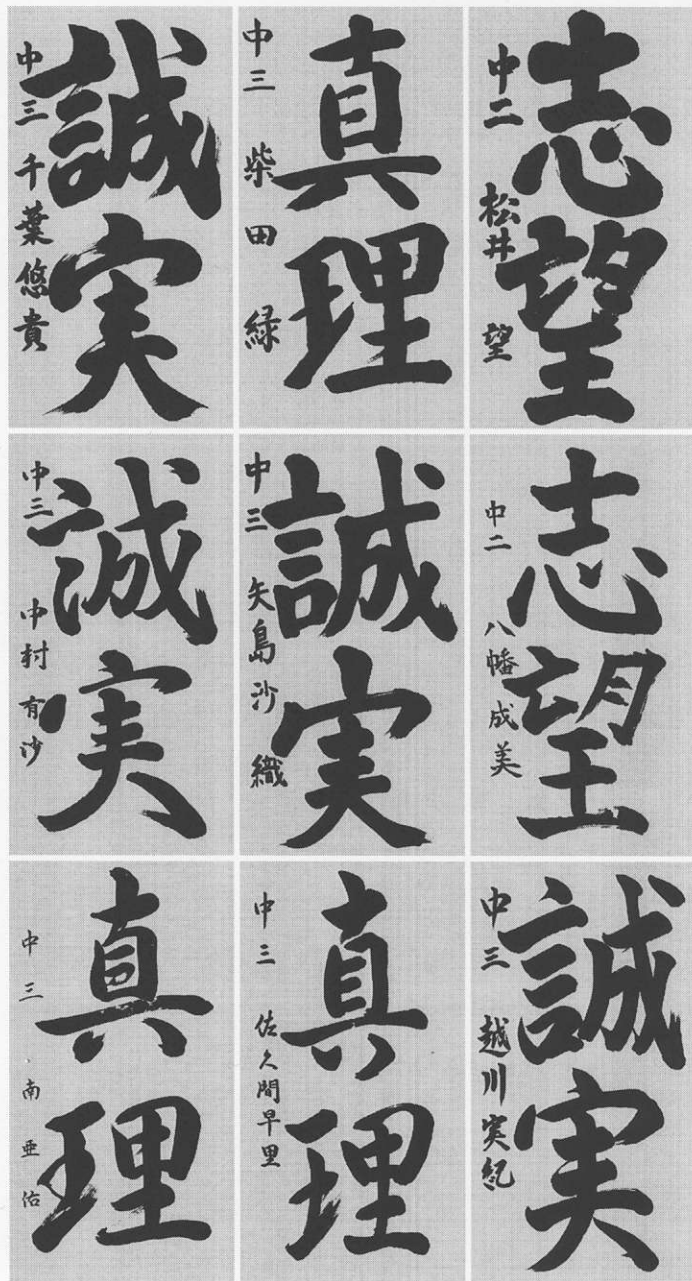 志望
中二 松井 望
真理
中三 柴田 緑
誠実
中三 千葉悠貴
志望
中二 八幡成美
誠実
中三 矢島沙織
誠実
中三 中村有沙
誠実
中三 越川実紀
真理
中三 佐久間早里
真理
中三 南亜佑